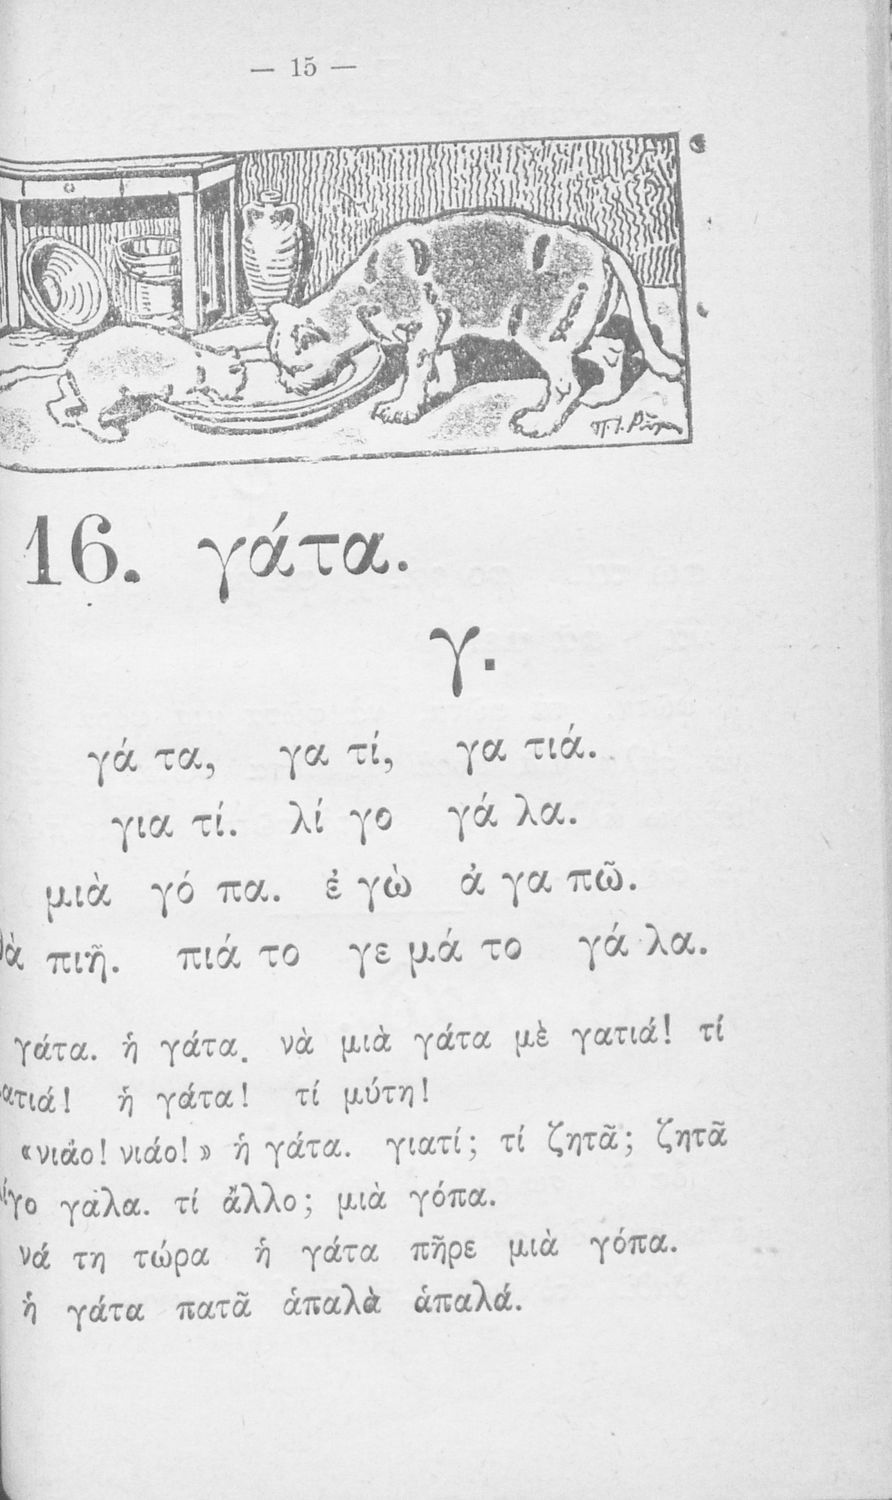 — 15 —
Π. Ι. Ρῶμ
16. γάτα.
γ.
γά τα, γα τί, γα τιά.
για τί. λί γο γά λα.
μιὰ γό πα. ἐ γὼ ἀ γα πῶ.
πιῆ. πιά το γε μά το γά λα.
γάτα. ἡ γάτα. νὰ μιὰ γάτα μὲ γατιά! τί
ἡ γάτα! τί μύτη!
«νιάο! νιάο!» ἡ γάτα. γιατί; τί ζητᾶ; ζητᾶ
γάλα. τί ἄλλο; μιὰ γόπα.
νά τη τώρα ἡ γάτα πῆρε μιὰ γόπα.
ἡ γάτα πατᾶ ἁπαλὰ ἁπαλά.